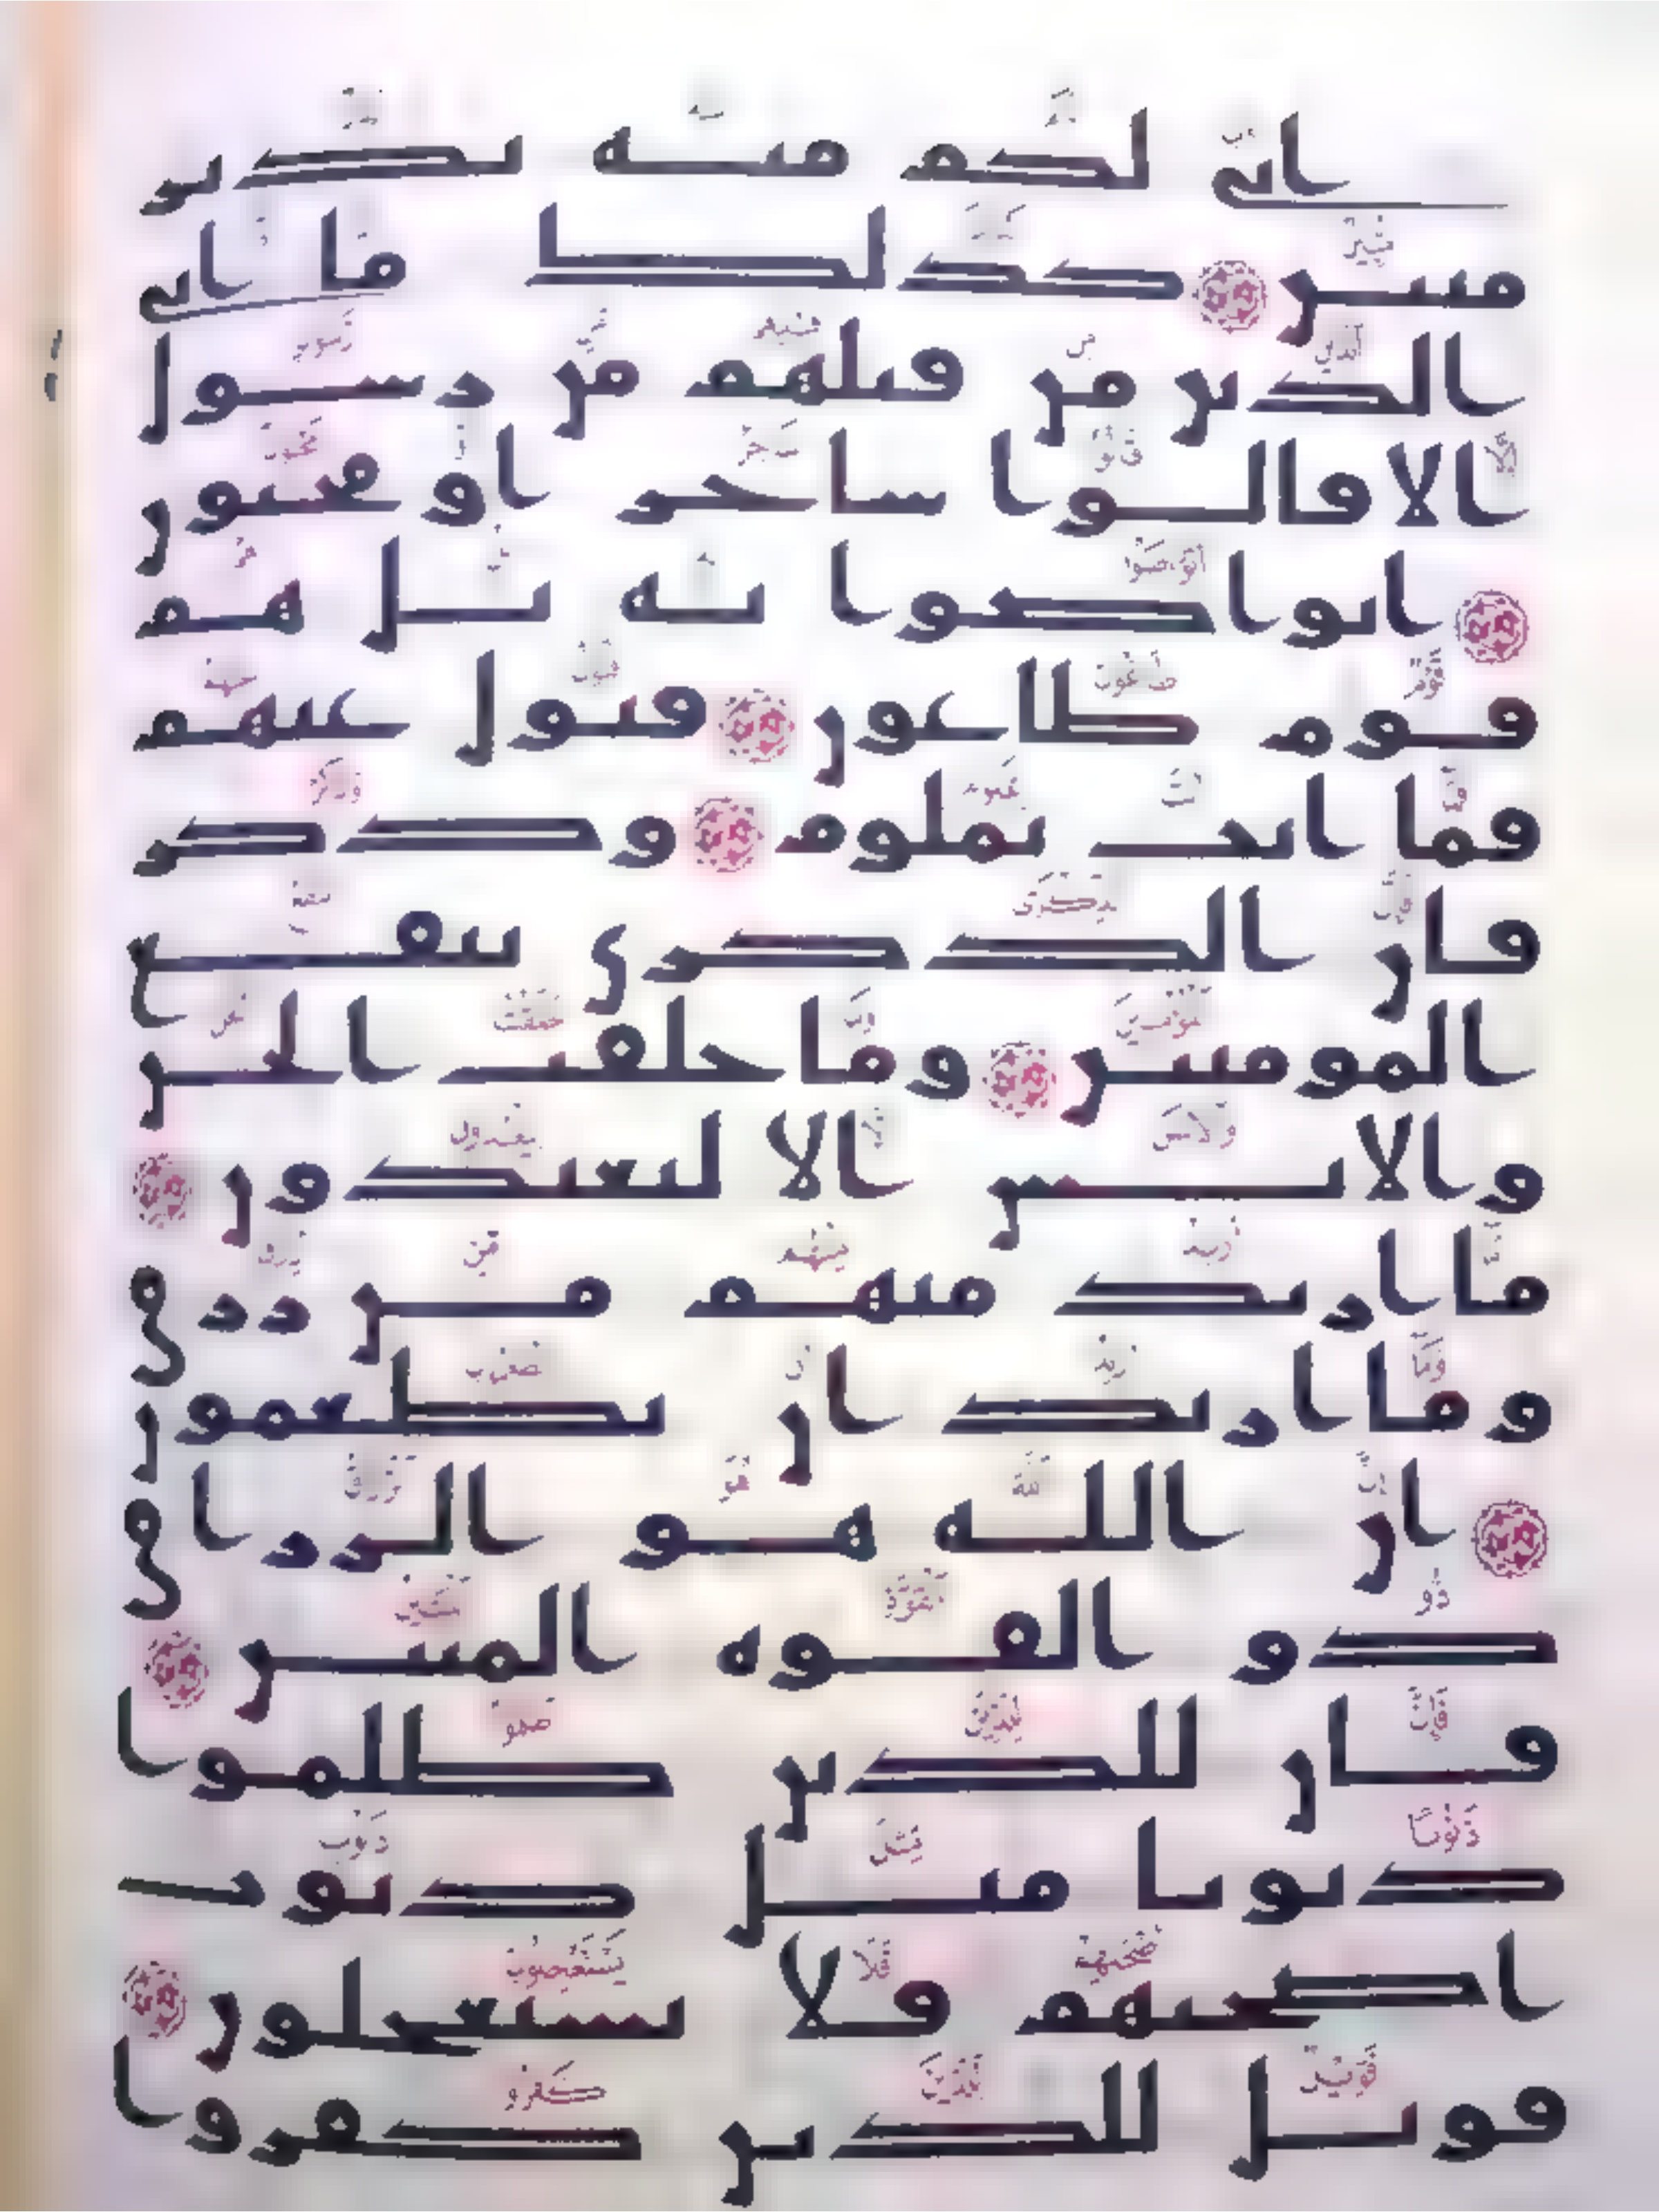 انى لكم منه نذير
مبين كذلك ما اتى
الذين من قبلهم من رسول
الا قالوا ساحر او مجنون
اتواصوا به بل هم
قوم طاغون فتول عنهم
فما انت بملوم وذكر
فان الذكرى تنفع
المومنين وما خلقت الجن
والانس الا ليعبدون
ما اريد منهم من رزق
وما اريد ان يطعمون
ان الله هو الرزاق
ذو القوه المتين
فان للذين ظلموا
ذنوبا مثل ذنوب
اصحبهم فلا يستعجلون
فويل للذين كفروا